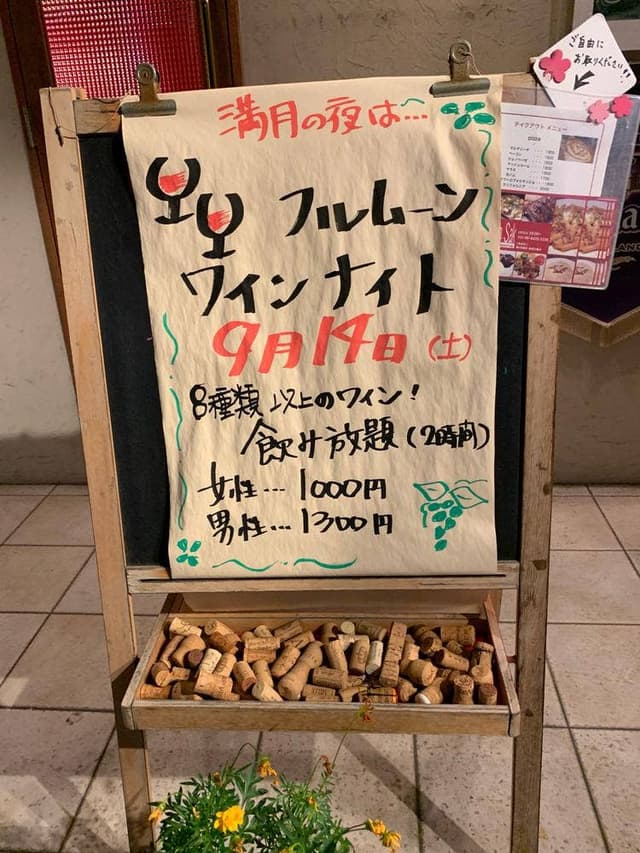 満月の夜は…
フルムーン
ワインナイト
9月14日(土)
8種類以上のワイン!
飲み放題(2時間)
女性…1000円
男性…1300円
ご自由に
お取りください!!
テイクアウト メニュー